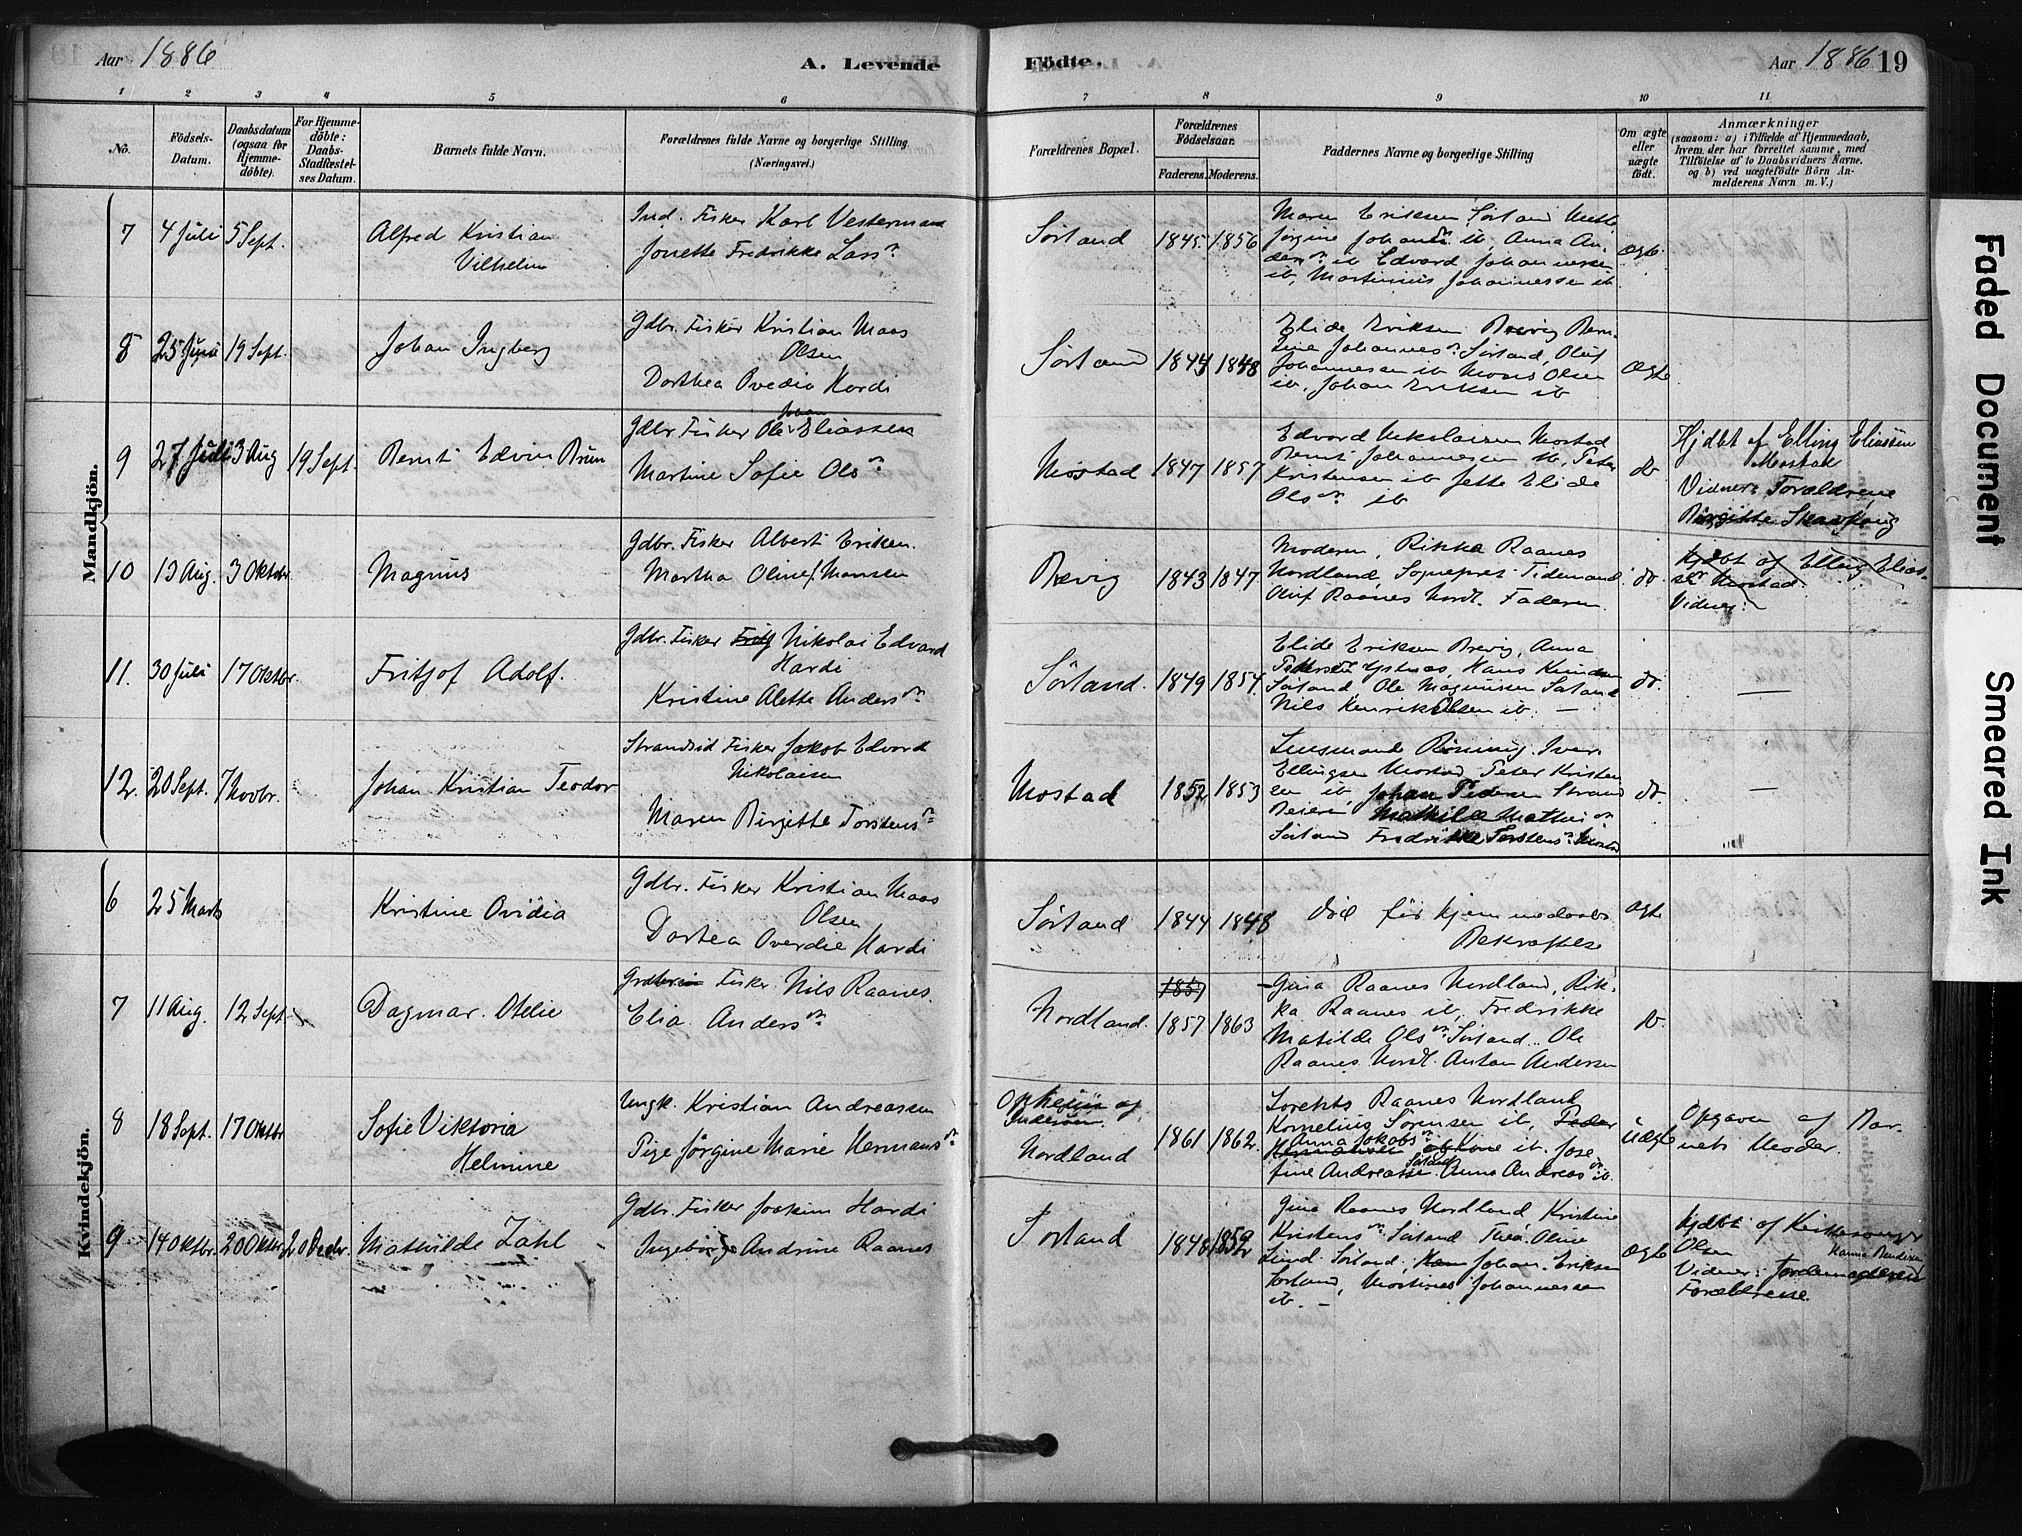 Aar 1886
A. Levende
Födte.
Aar 1886 19
1 2 3 4 5 6 7 8 9 10 11
No.
Födsels-
Datum.
Daabsdatum
(ogsaa for
Hjemme-
döbte).
For Hjemme-
döbte:
Daabs-
Stadfæstel-
ses Datum.
Barnets fulde Navn.
Forældrenes fulde Navne og borgerlige Stilling
(Næringsvei.)
Forældrenes Bopæl.
Forældrenes
Födselsaar.
Faderens. Moderens.
Faddernes Navne og borgerlige Stilling
Om ægte
eller
uægte
födt.
Anmærkninger
(saasom: a) i Tilfælde af Hjemmedaab,
hvem der har forrettet samme, med
Tilföielse af to Daabsvidners Navne.
og b) ved uægtefödte Börn An-
melderens Navn m. V.)
Mandkjön.
7 4 Juli 5 Sept.
Alfred Kristian
Vilhelm
Ind. Fisker Karl Vestermand
Jonette Fredrikke Larsdr
Sørland 1845 1856
Maren Eriksen Sørland
Jørgine Johansdr ib, Anna An-
dersdr ib Edvard Johannessen
ib, Martinius Johannessen ib
ægte
8 25 Juni 19 Sept.
Johan Ingberg
Gdbr. Fisker Kristian Maas
Olsen
Dorthea Ovedia Hardi
Sørland 1844 1848
Elide Eriksen Brevig
Johannesdr Sørland, Oluf
Johannessen ib Mons Olsen
ib, Johan Eriksen ib
Ægte
9 27 Juli 3 Aug 19 Sept.
Bernt Edvin Brun
Gdbr Fisker Ole Johan Eliassen
Martine Sofie Olsdr
Mostad 1847 1857
Edvard Nikolaisen Mostad
Bernt Johannessen ib, Peter
Kristensen ib Jette Elide
Olsdr ib
do
Hjdbt af Elling Eliassen
Mostad
Vidner: Forældrene
10 13 Aug. 3 Oktbr.
Magnus
Gdbr. Fisker Albert Eriksen.
Martha Oline Hansen
Brevig 1843 1847
Moderen, Rikka Raanes
Nordland, Sognepræst Tidemand
Oluf Raanes Nordl. Faderen
do.
Hjdbt af Elling Elias-
sen Mostad.
Vidner:
11. 30 Juli 17 Oktbr.
Fritjof Adolf.
Gdbr. Fisker Nikolai Edvard
Hardi
Kristine Alette Andersdr
Sørland. 1849 1854.
Elide Eriksen Brevig, Anna
Pedersdr Ystnæs, Hans Knudsen
Sørland, Ole Magnussen Sørland
Nils Henrik Olsen ib. —
do.
—
12. 20 Sept. 7 Novbr.
Johan Kristian Teodor
Strandsid Fisker Jakob Edvard
Nikolaisen
Maren Birgitte Torstensdr
Mostad 1852 1853
Lensmand Rønning. Iver
Ellingsen Mostad Peter Kristen
sen ib, Johan Pedersen Strand
Mathilde
Sørland Fredrikke Torstensdr Mostad
do.
—
Kvindekjön.
6 25 Marts
Kristine Ovidia
Gdbr. Fisker Kristian Maas
Olsen
Dorthea Overdie Hardi
Sørland 1844 1848
død før Hjemmedaabs
Bekræftelse
Ægte
7 11 Aug. 12 Sept.
Dagmar. Otelie
Fisker Nils Raanes.
Elia Andersdr
Nordland. 1857
1857 1863
Gina Raanes Nordland, Rik-
ka Raanes ib, Fredrikke
Matilde Olsdr Sørland. Ole
Raanes Nordl. Anton Andersen
do.
8 18 Sept. 17 Oktbr
Sofie Viktoria
Helmine
Ungk. Kristian Andreassen
Pige Jørgine Marie Hermansdr
Nordland 1861 1862.
Raanes Nordland
Kornelius Sørensen ib, Peder
Anna Jakobsdr
Kone ib. Jose
fine Andreassen Sørland Anna Andreasdr ib.
Uægte
Opgaven af Bar-
nets Moder.
9 14 Oktbr. 20 Oktbr 20 Decbr.
Mathilde Zahl
Gdbr. Fisker Joakim Hardi
Ingeborg Andrine Raanes
Sørland 1848 1852
Gina Raanes Nordland Kristine
Kristensdr Sørland Thea Oline
Lind. Sørland, Johan Eriksen
Sørland, Martines Johannessen
ib. —
Ægte
Hjdbt af
Olsen
Vidner: Jordemoderen
Forældrene.
Faded Document
Smeared Ink